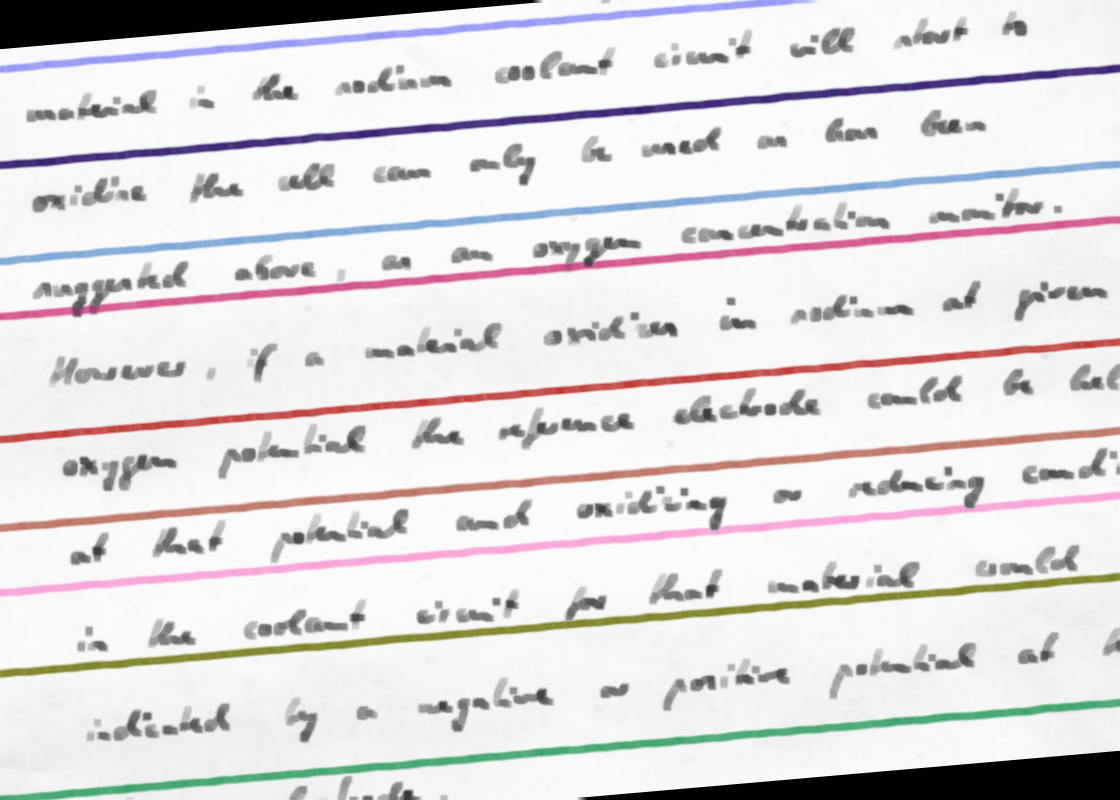 material in the sodium coolant circuit will start to
oxidise the cell can only be used as has been
suggested above, as an oxygen concentration monitor.
However, if a material oxidises in sodium at given
oxygen potential the reference electrode could be
at that potential and oxidizing or reducing
in the coolant circuit for that material could
indicated by a negative or positive potential at